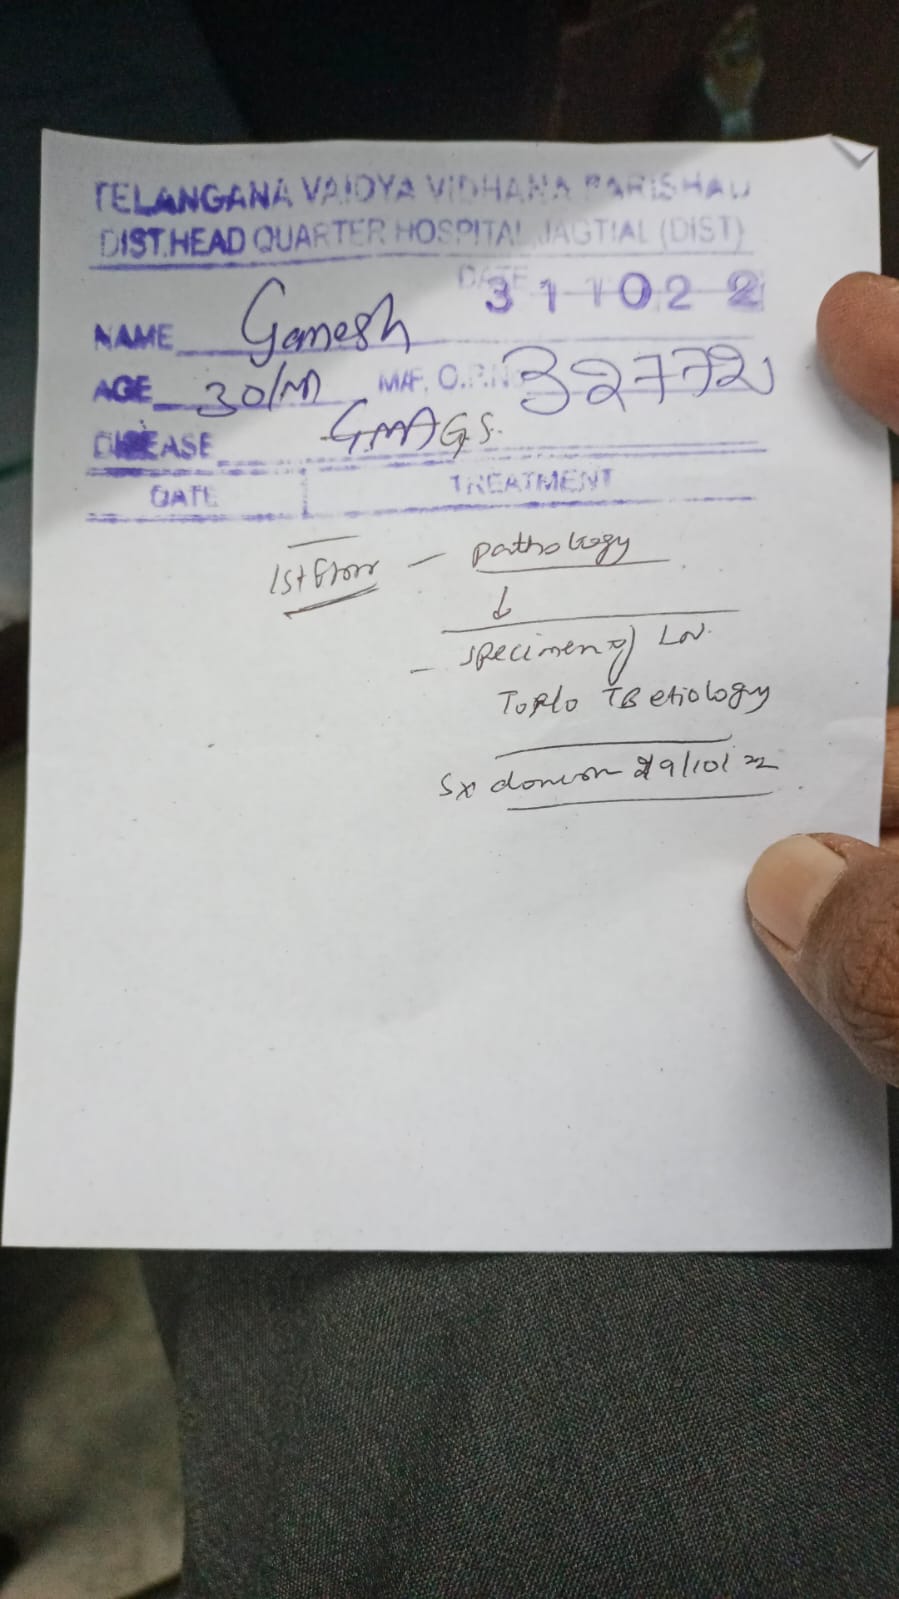 TELANGANA VAIDYA VIDHANA PARISHAD
DIST.HEAD QUARTER HOSPITAL JAGTIAL (DIST)
DATE 311022
NAME Ganesh
AGE 30/M M/F. O.P.N 32772
DISEASE G.S.
DATE TREATMENT
1st floor - pathology
↓
- specimen of LN.
To R/o TB etiology
Sx done on 29/10/22